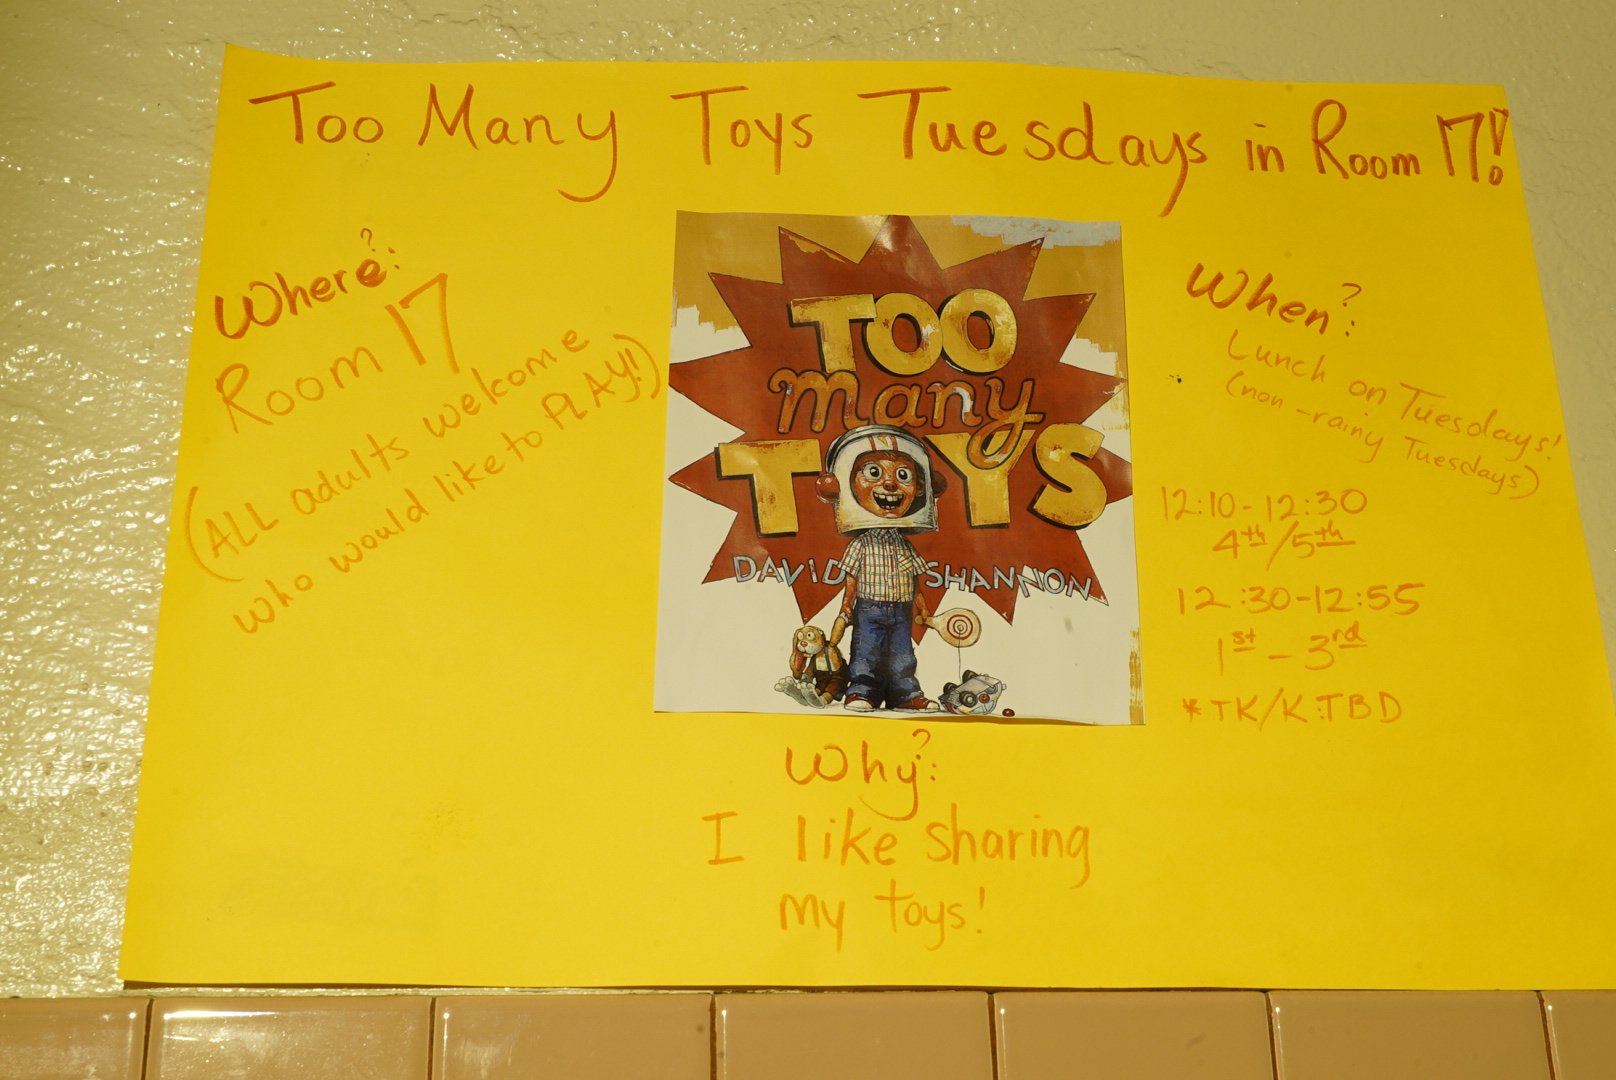 Too Many Toys Tuesdays in Room 17!
Where?:
Room 17
(ALL adults welcome
who would like to PLAY!)
TOO
many
TOYS
DAVID SHANNON
When?:
Lunch on Tuesdays!
(non-rainy Tuesdays)
12:10-12:30
4th/5th
12:30-12:55
1st-3rd
*TK/K:TBD
Why?:
I like sharing
my toys!